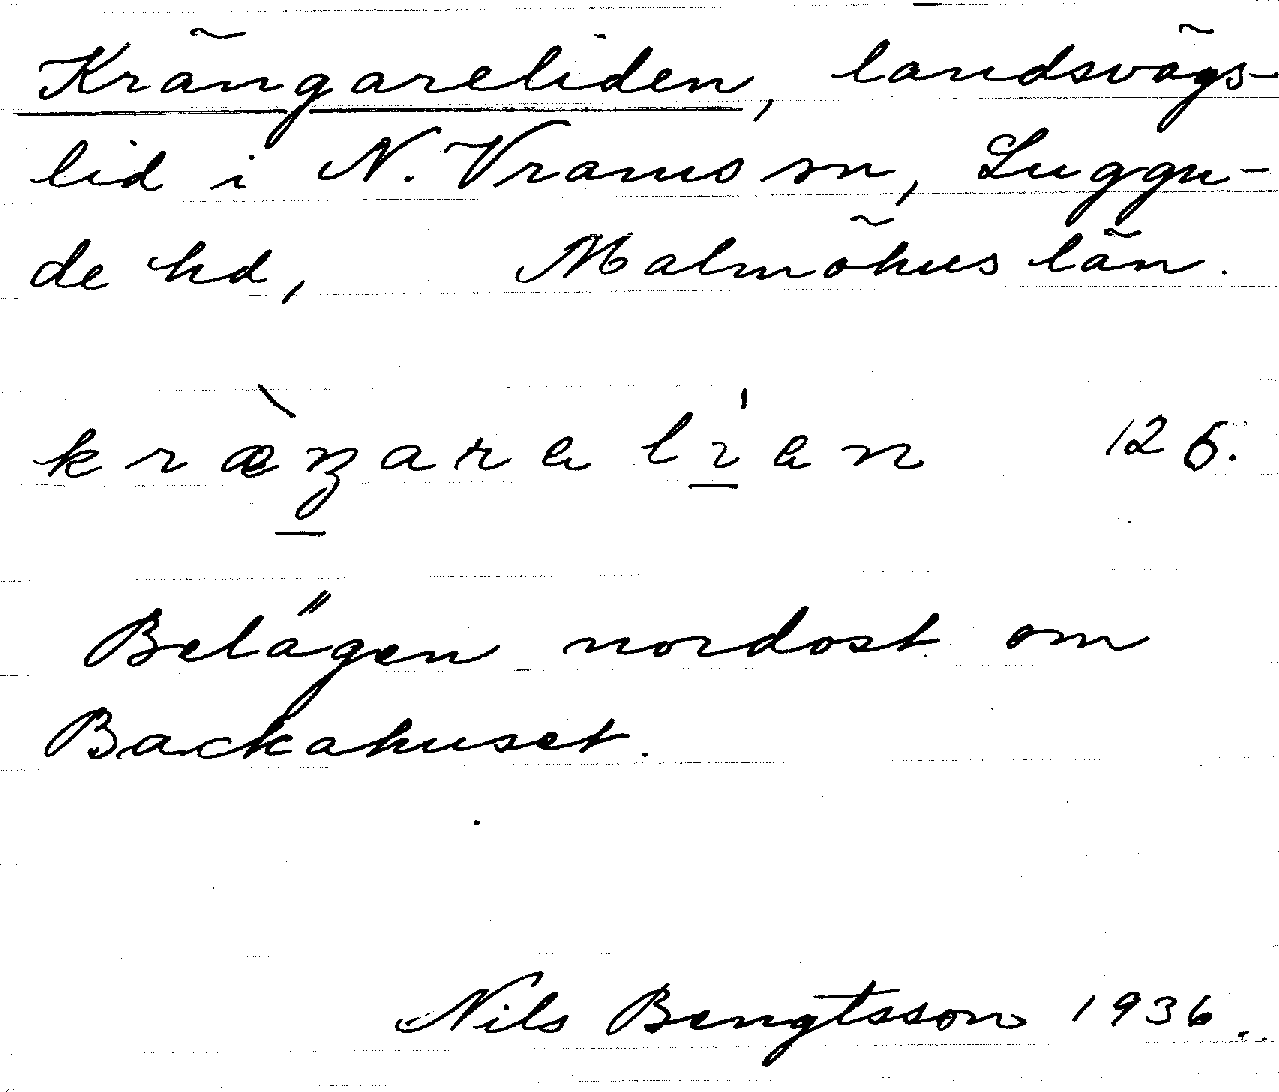 Krängareliden, landsvägs-
lid i N. Vrams sn, Luggu-
de hd, Malmöhus län.
kræ̀ŋara lían 126.
Belägen nordost om
Backahuset.
Nils Bengtsson 1936.